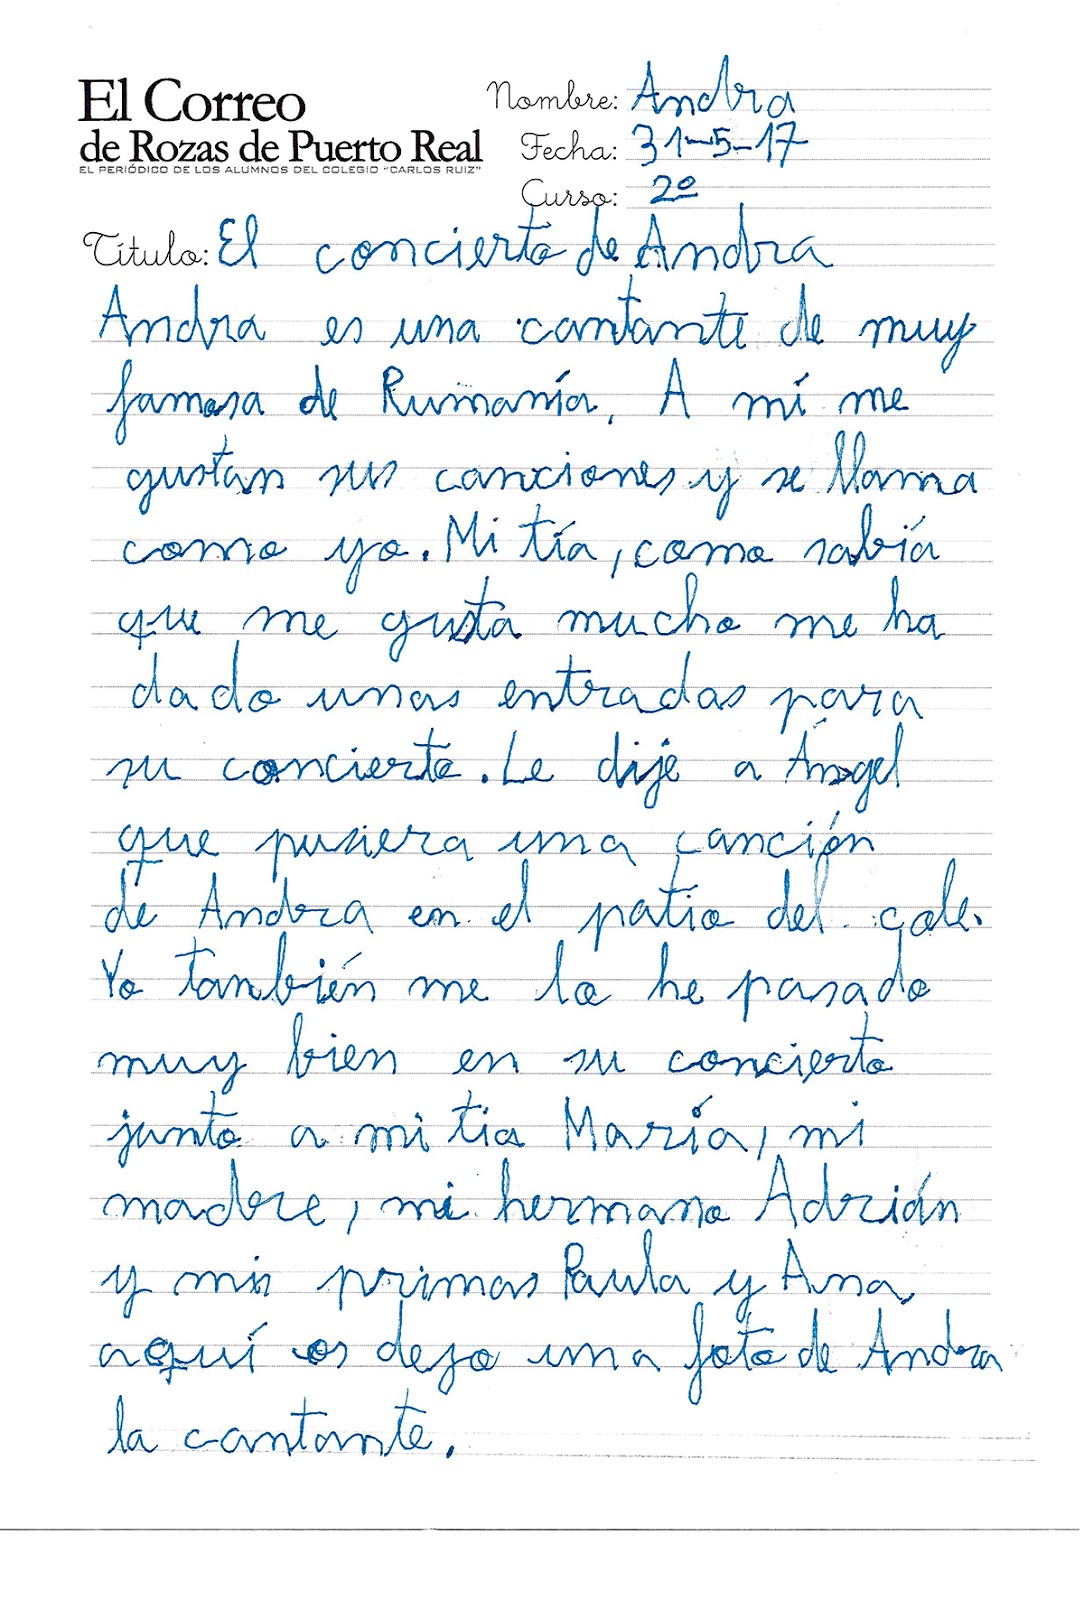 El Correo
de Rozas de Puerto Real
EL PERIÓDICO DE LOS ALUMNOS DEL COLEGIO "CARLOS RUIZ"
Nombre: Andra
Fecha: 31-5-17
Curso: 2º
Título: El concierto de Andra
Andra es una cantante de muy
famosa de Rumanía. A mí me
gustan sus canciones y se llama
como yo. Mi tía, como sabía
que me gusta mucho me ha
dado unas entradas para
su concierto. Le dije a Ángel
que pusiera una canción
de Andra en el patio del cole.
Yo también me lo he pasado
muy bien en su concierto
junto a mi tia María, mi
madre, mi hermano Adrián
y mis primas Paula y Ana,
aquí os dejo una foto de Andra
la cantante.